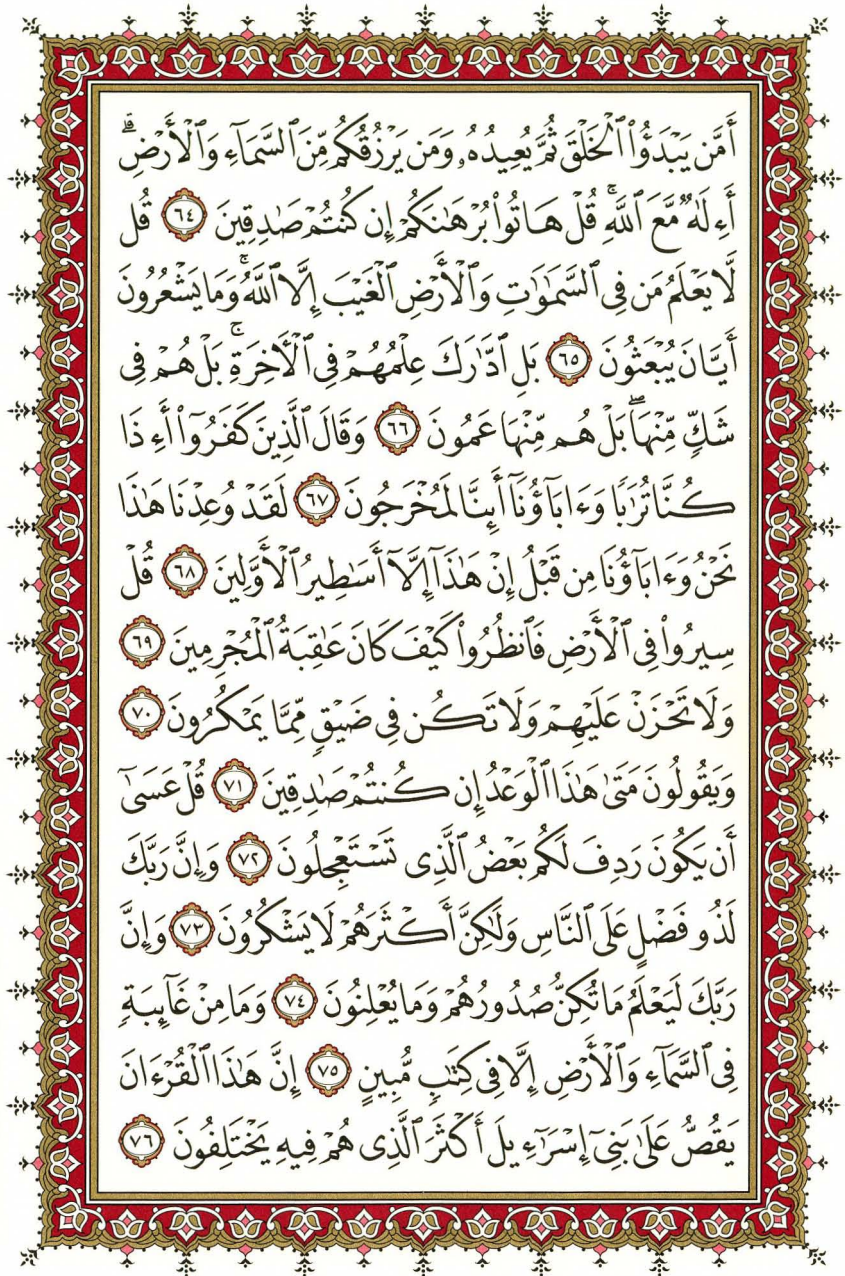 أَمَّن يَبْدَؤُا۟ ٱلْخَلْقَ ثُمَّ يُعِيدُهُۥ وَمَن يَرْزُقُكُم مِّنَ ٱلسَّمَآءِ وَٱلْأَرْضِ ۗ
أَءِلَٰهٌ مَّعَ ٱللَّهِ ۚ قُلْ هَاتُوا۟ بُرْهَٰنَكُمْ إِن كُنتُمْ صَٰدِقِينَ ٦٤ قُل
لَّا يَعْلَمُ مَن فِى ٱلسَّمَٰوَٰتِ وَٱلْأَرْضِ ٱلْغَيْبَ إِلَّا ٱللَّهُ ۚ وَمَا يَشْعُرُونَ
أَيَّانَ يُبْعَثُونَ ٦٥ بَلِ ٱدَّٰرَكَ عِلْمُهُمْ فِى ٱلْأَخِرَةِ ۚ بَلْ هُمْ فِى
شَكٍّ مِّنْهَا ۖ بَلْ هُم مِّنْهَا عَمُونَ ٦٦ وَقَالَ ٱلَّذِينَ كَفَرُوٓا۟ أَءِذَا
كُنَّا تُرَٰبًا وَءَابَآؤُنَآ أَئِنَّا لَمُخْرَجُونَ ٦٧ لَقَدْ وُعِدْنَا هَٰذَا
نَحْنُ وَءَابَآؤُنَا مِن قَبْلُ إِنْ هَٰذَآ إِلَّآ أَسَٰطِيرُ ٱلْأَوَّلِينَ ٦٨ قُلْ
سِيرُوا۟ فِى ٱلْأَرْضِ فَٱنظُرُوا۟ كَيْفَ كَانَ عَٰقِبَةُ ٱلْمُجْرِمِينَ ٦٩
وَلَا تَحْزَنْ عَلَيْهِمْ وَلَا تَكُن فِى ضَيْقٍ مِّمَّا يَمْكُرُونَ ٧٠
وَيَقُولُونَ مَتَىٰ هَٰذَا ٱلْوَعْدُ إِن كُنتُمْ صَٰدِقِينَ ٧١ قُلْ عَسَىٰٓ
أَن يَكُونَ رَدِفَ لَكُم بَعْضُ ٱلَّذِى تَسْتَعْجِلُونَ ٧٢ وَإِنَّ رَبَّكَ
لَذُو فَضْلٍ عَلَى ٱلنَّاسِ وَلَٰكِنَّ أَكْثَرَهُمْ لَا يَشْكُرُونَ ٧٣ وَإِنَّ
رَبَّكَ لَيَعْلَمُ مَا تُكِنُّ صُدُورُهُمْ وَمَا يُعْلِنُونَ ٧٤ وَمَا مِنْ غَآئِبَةٍ
فِى ٱلسَّمَآءِ وَٱلْأَرْضِ إِلَّا فِى كِتَٰبٍ مُّبِينٍ ٧٥ إِنَّ هَٰذَا ٱلْقُرْءَانَ
يَقُصُّ عَلَىٰ بَنِىٓ إِسْرَٰٓءِيلَ أَكْثَرَ ٱلَّذِى هُمْ فِيهِ يَخْتَلِفُونَ ٧٦